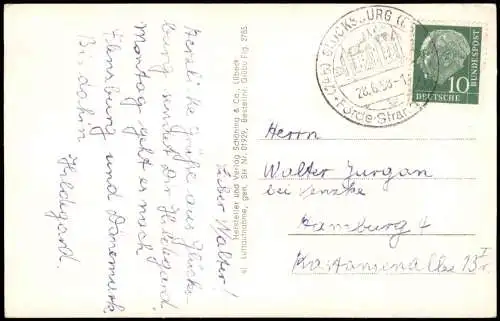 Lieber Walter!
Herzliche Grüße aus Glücks-
burg sendet Dir Hildegard.
Montag geht es nach
Flensburg und Dänemark.
Bis dahin
Hildegard.
Hersteller und Verlag Schöning & Co., Lübeck
Luftaufnahme, gen. SH Nr. 01929, Bestellnr. Glübu Flg. 2785
(24b) GLÜCKSBURG
28.6.58
Förde-Strand
10
DEUTSCHE
BUNDESPOST
Herrn
Walter Jurgan
bei Venzke
Hamburg 4
Kastanienallee 13 I